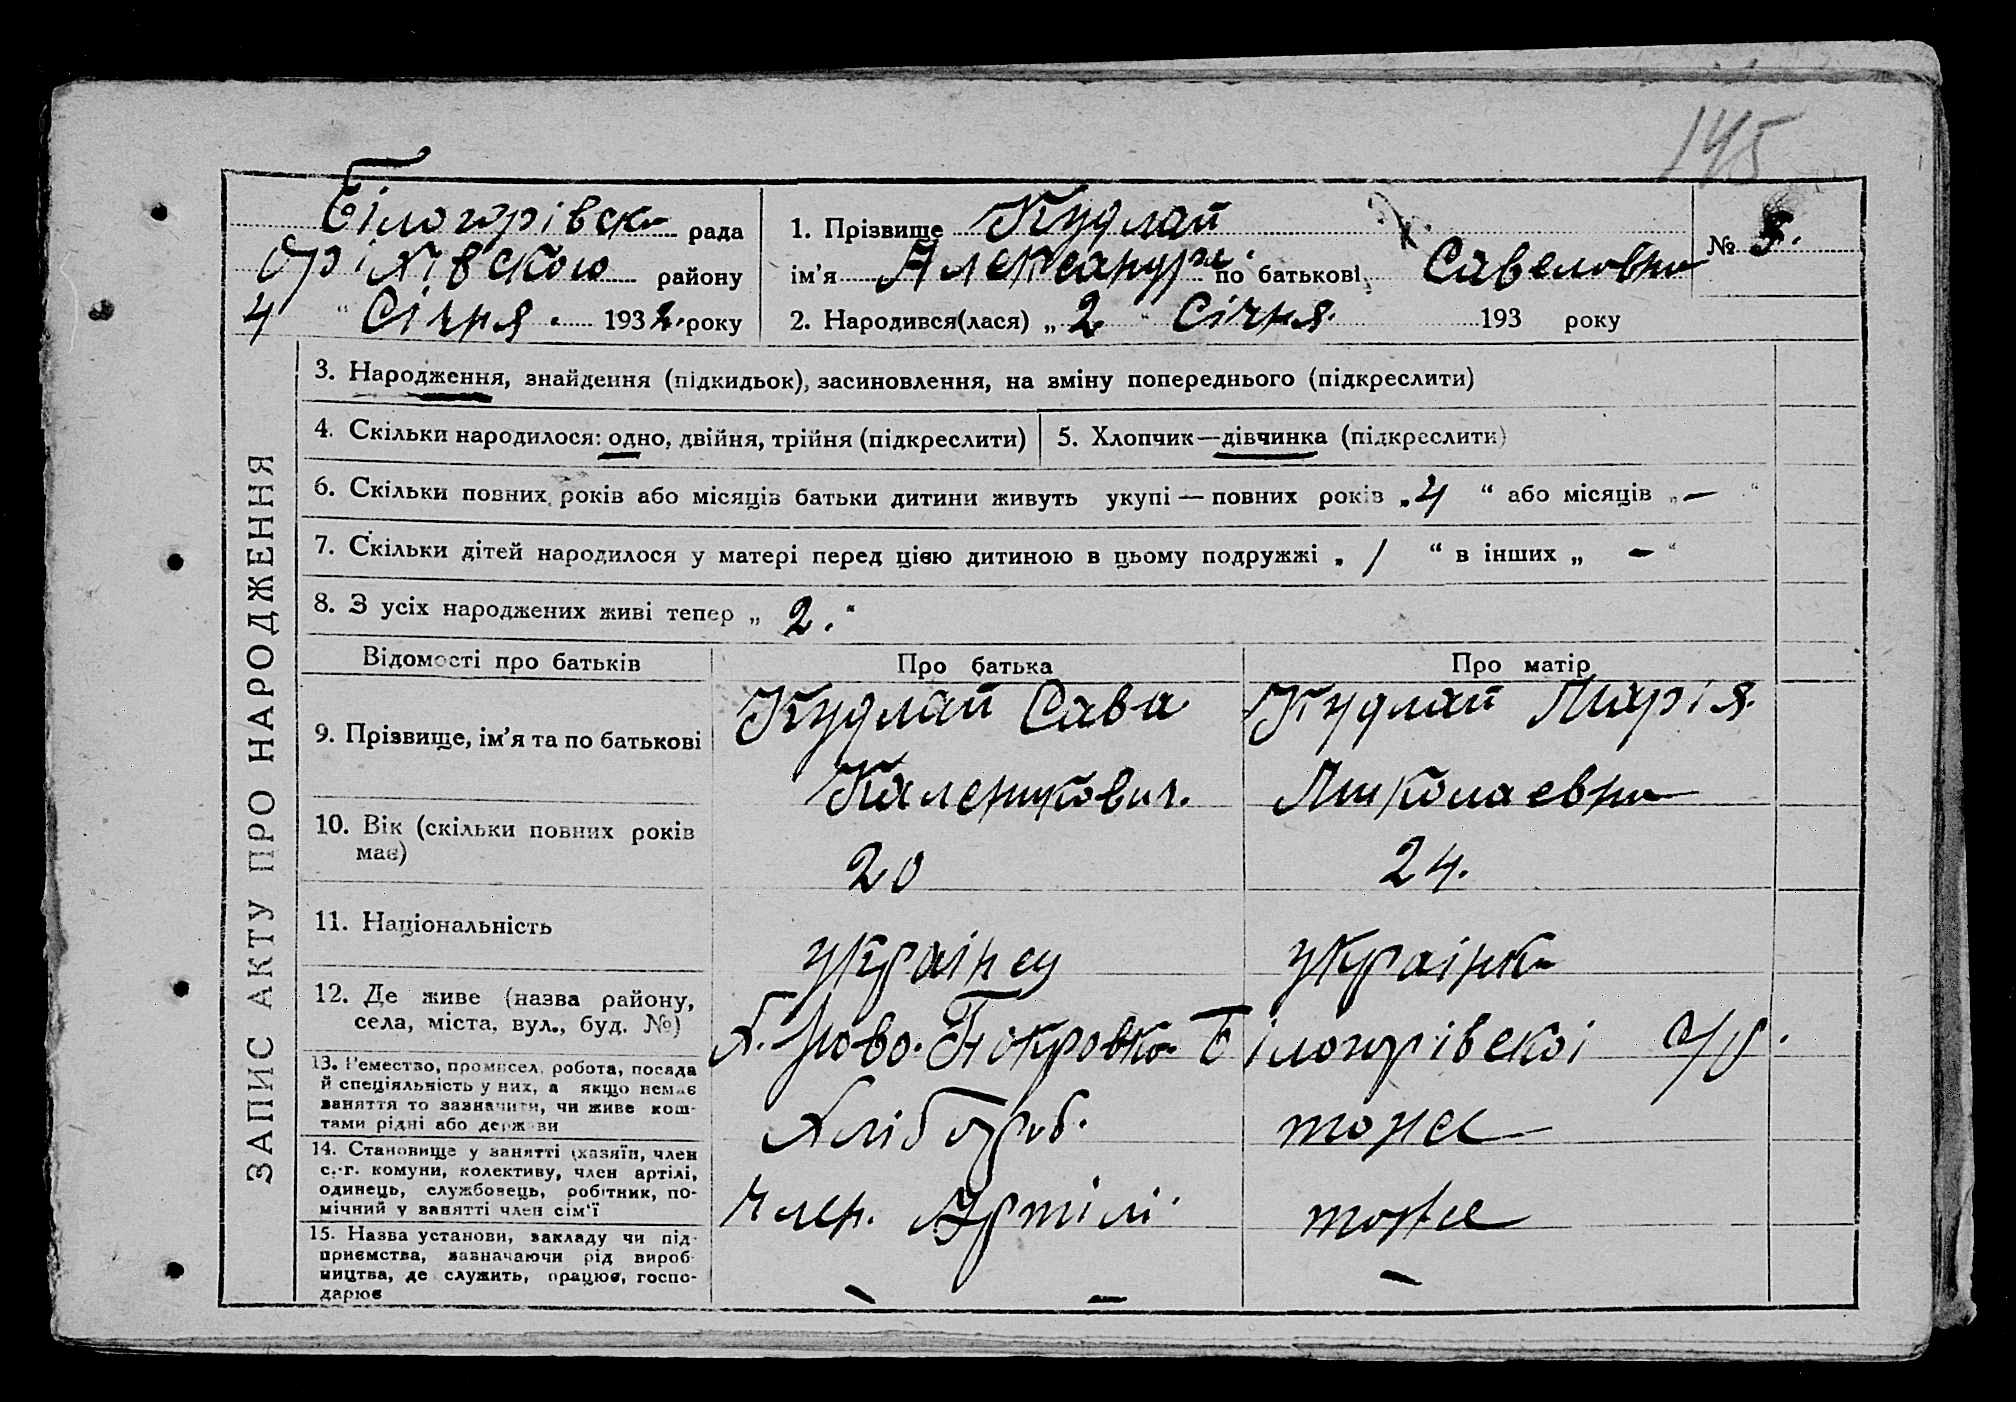 145
Білогорівск рада
Оріхівского району
4 " Січня. 1932. року
1. Прізвище Кудлай
ім'я Александра по батькові Савеловна
№ 5.
2. Народився(лася) „ 2 " Січня. 193 року
ЗАПИС АКТУ ПРО НАРОДЖЕННЯ
3. Народження, знайдення (підкидьок), засиновлення, на зміну попереднього (підкреслити)
4. Скільки народилося: одно, двійня, трійня (підкреслити)
5. Хлопчик—дівчинка (підкреслити)
6. Скільки повних років або місяців батьки дитини живуть укупі — повних років „ 4 “ або місяців „ — “
7. Скільки дітей народилося у матері перед цією дитиною в цьому подружжі „ 1 “ в інших „ — “
8. З усіх народжених живі тепер „ 2. “
Відомості про батьків Про батька Про матір
9. Прізвище, ім'я та по батькові
Кудлай Сава
Каленикович.
Кудлай Марія.
Миколаевна
10. Вік (скільки повних років
має)
20
24.
11. Національність
українец
українк
12. Де живе (назва району,
села, міста, вул., буд. №)
Х. Ново-Покровка Білогорівскоі с/р.
13. Ремество, промисел, робота, посада
й спеціяльність у них, а якщо немає
заняття то зазначити, чи живе кош-
тами рідні або держави
Хлібороб.
тоже
14. Становище у занятті (хазяїн, член
с.-г. комуни, колективу, член артілі,
одинець, службовець, робітник, по-
мічний у занятті член сім'ї
Член. Артілі
тоже
15. Назва установи, закладу чи під-
приємства, зазначаючи рід вироб-
ництва, де служить, працює, госпо-
дарює
— —
—